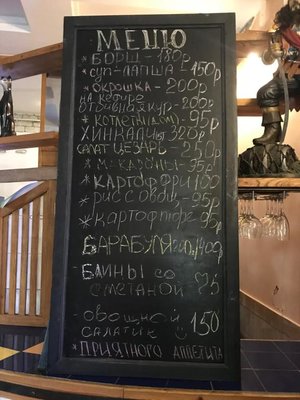 МЕНЮ
* БОРЩ - 180р
* СУП-ЛАПША - 150р
* ОКРОШКА - 200р
НА КЕФИРЕ
200р
* КОТЛЕТЫ (ДОМ) - 95р
ХИНКАЛИ 320р
САЛАТ ЦЕЗАРЬ - 250р
* МАКАРОНЫ - 95р
* КАРТОФ ФРИ 100
* РИС С ОВОЩ - 95р
* КАРТОФ ПЮРЕ - 95р
БАРАБУЛЯ 400р
- БЛИНЫ СО
СМЕТАНОЙ
- ОВОЩНОЙ
САЛАТИК 150
* ПРИЯТНОГО АППЕТИТА